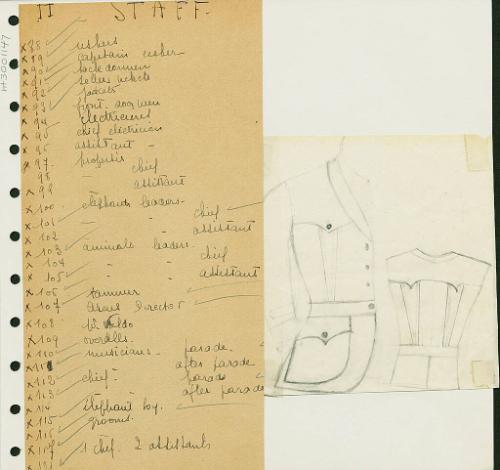 II STAFF.
x 88 ushers
x 89 capitain usher
x 90 back doormen
x 91 sellers
x 92
x 93 front doormen
x 94 electriciens
x 95 chief electricien
x 96 assistant -
x 97. properties
98 - chief
x 99 assistant
x 100 elephants leaders -
x 101 - - chief
x 102 assistant
x 103 animals leaders.
x 104 - - chief
x 105 - - assistant
x 106
x 107 Director
x 108 12
x 109 overalls.
x 110 musicians - parade.
x 111 after parade
x 112 chief - parade
x 113 after parade
x 114 elephant boy.
x 115 grooms.
x 116
x 117 1 chef. 2 assistants
H3001147